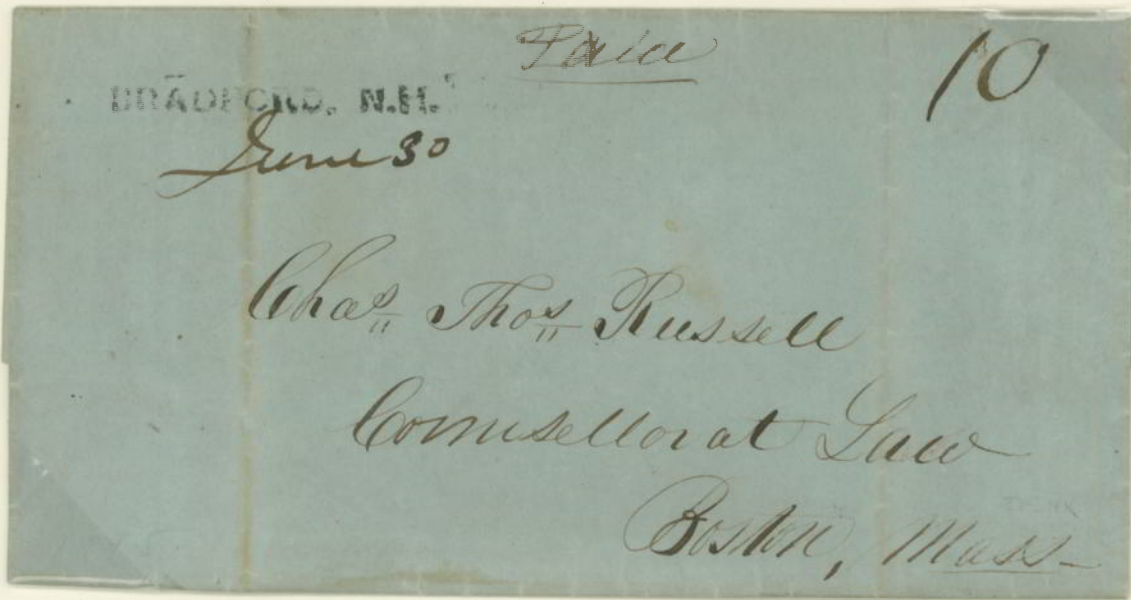 Paid
10
BRADFORD, N.H.
June 30
Chas. Thos. Russell
Counsellor at Law
Boston, Mass